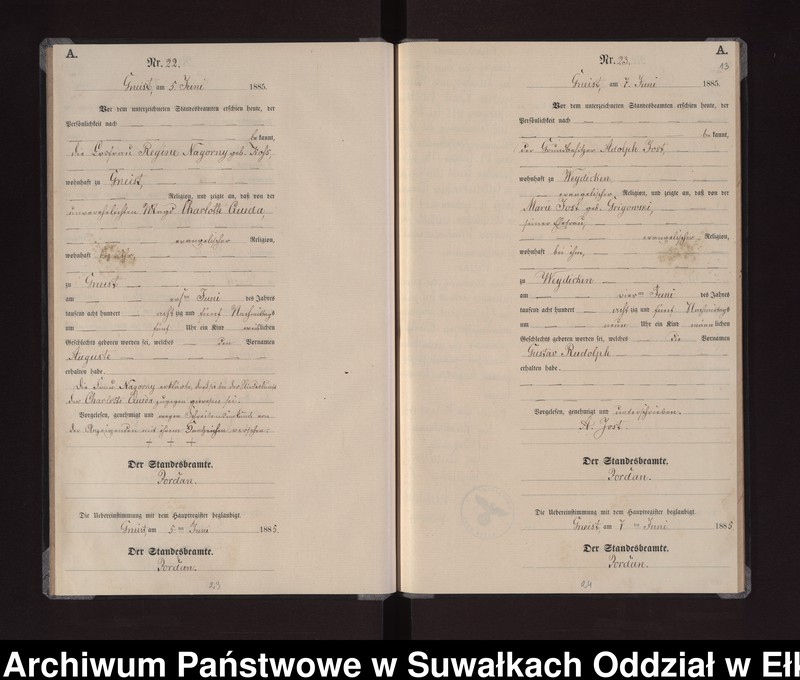 A.
Nr. 22.
Gneist, am 5. Juni 1885.
Vor dem unterzeichneten Standesbeamten erschien heute, der
Persönlichkeit nach
be kannt,
die Losfrau Regine Nagorny geb.
wohnhaft zu Gneist,
Religion, und zeigte an, daß von der
unverehelichten Magd Charlotte
evangelischer Religion,
wohnhaft bei ihr,
zu Gneist
am Juni des Jahres
tausend acht hundert achtzig und fünf Nachmittags
um fünf Uhr ein Kind weiblichen
Geschlechts geboren worden sei, welches den Vornamen
Auguste
erhalten habe.
Die Frau Nagorny erklärte, daß sie bei der Niederkunft
der Charlotte zugegen gewesen sei.
Vorgelesen, genehmigt und wegen Schreibensunkunde von
der Anzeigenden mit ihrem Handzeichen versehen.
+ + +
Der Standesbeamte.
Jordan.
Die Uebereinstimmung mit dem Hauptregister beglaubigt.
Gneist, am 5 ten Juni 1885.
Der Standesbeamte.
Jordan.
23
A.
13
Nr. 23.
Gneist, am 7. Juni 1885.
Vor dem unterzeichneten Standesbeamten erschien heute, der
Persönlichkeit nach
be kannt,
der Grundbesitzer Adolph Jost,
wohnhaft zu Weydicken
evangelischer Religion, und zeigte an, daß von der
Marie Jost geb. Grigowski,
seiner Ehefrau,
evangelischer Religion,
wohnhaft bei ihm,
zu Weydicken
am vierten Juni des Jahres
tausend acht hundert achtzig und fünf Nachmittags
um neun Uhr ein Kind männlichen
Geschlechts geboren worden sei, welches die Vornamen
Gustav Rudolph
erhalten habe.
Vorgelesen, genehmigt und unterschrieben.
A. Jost
Der Standesbeamte.
Jordan.
Die Uebereinstimmung mit dem Hauptregister beglaubigt.
Gneist, am 7 ten Juni 1885.
Der Standesbeamte.
Jordan.
24
Archiwum Państwowe w Suwałkach Oddział w Ełk